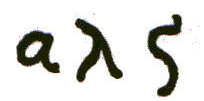 αλς